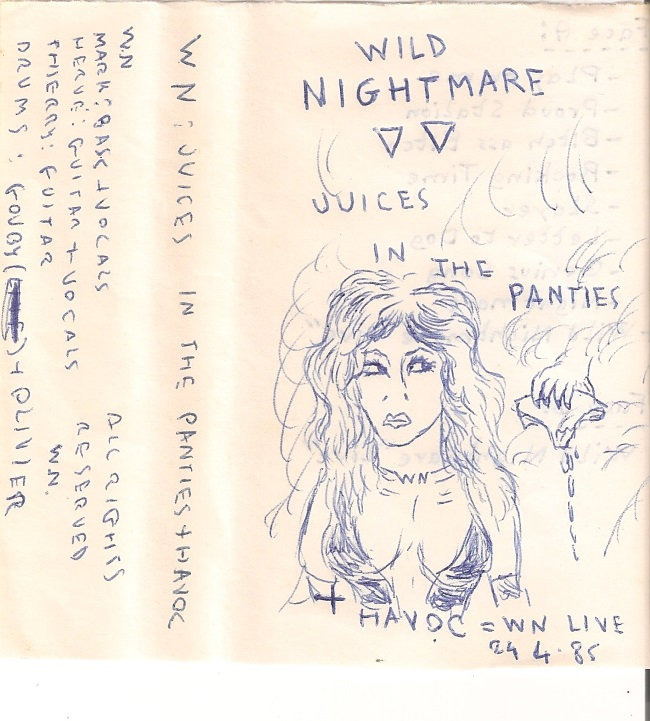 WILD
NIGHTMARE
JUICES
IN THE
PANTIES
WN
+ HAVOC = WN LIVE
24 4.85
WN: JUICES IN THE PANTIES + HAVOC
W.N
MARK: BASS + VOCALS
HERVE: GUITAR + VOCALS
THIERRY: GUITAR
DRUMS: ( ) + OLIVIER
ALL RIGHTS
RESERVED
W.N.